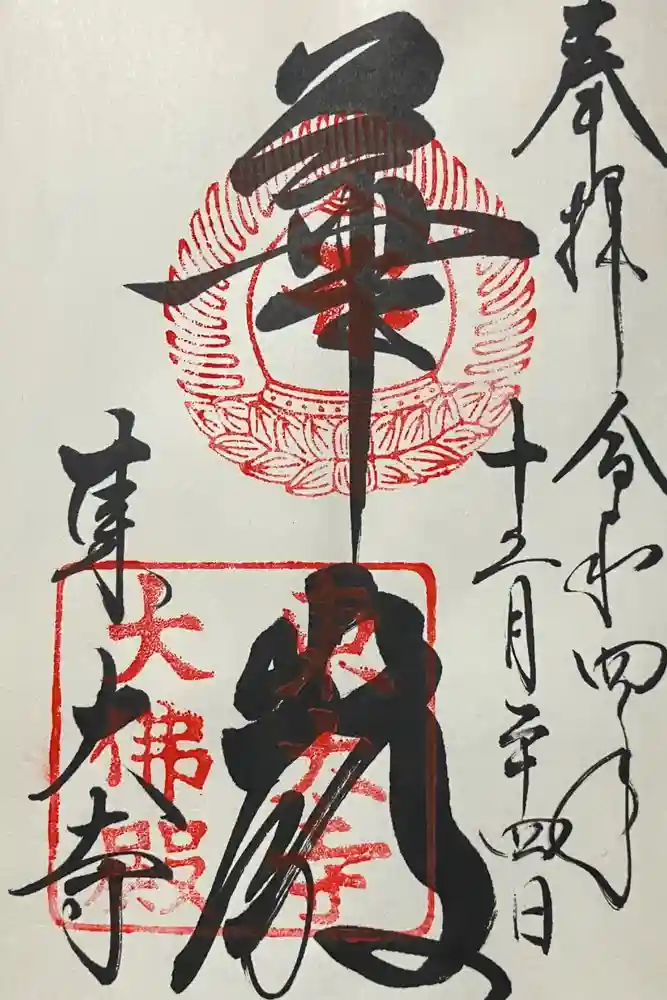 奉拝 令和四年
十二月二十四日
華嚴
東大寺
東大寺
大佛殿